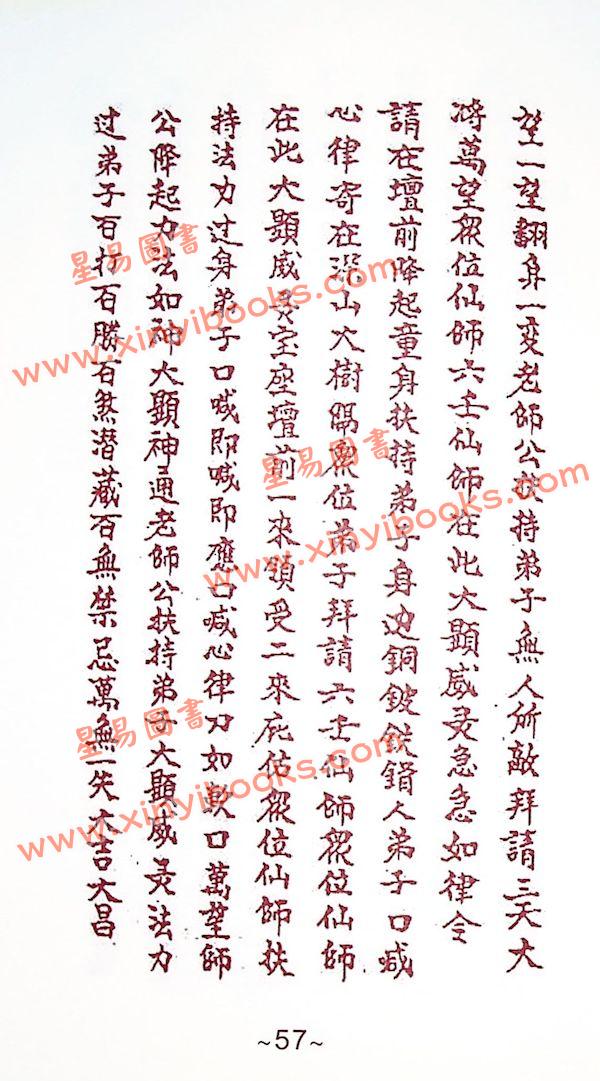 望一望翻身一变老師公扶持弟子無人所敵拜請三天大
將萬望眾位仙師六壬仙師在此大顯威灵急急如律令
請在壇前降起童身扶持弟子身边銅皷鉄鎖人弟子口喊
心律寄在深山大樹隔眾位弟子拜請六壬仙師眾位仙師
在此大顯威灵宝座壇前一來領受二來庇估眾位仙師扶
持法力过身弟子口喊即喊即應口喊心律刀如軟口萬望師
公降起力法如神大顯神通老師公扶持弟子大顯威灵法力
过弟子百打百勝百煞潜藏百無禁忌萬無一失大吉大昌
星易圖書
www.xinyibooks.com
星易圖書
www.xinyibooks.com
星易圖書
www.xinyibooks.com
~57~